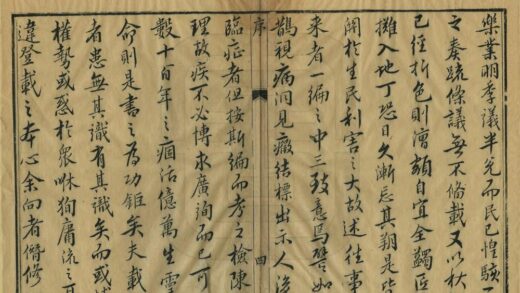 樂業明季議半免而民已惶駭
之奏疏條議無不備載又以秋
已經折色則漕額自宜全蠲
攤入地丁恐日久漸忘其朔是皆
關於生民利害之大故述往事
来者一編之中三致意焉譬如
鵲視病洞見癥結標出示人後
序 四
臨症者但按斯編而考之檢陳
理故疾不必博求廣詢而已可
數十百年之痼活億萬生靈
命則是書之為功鉅矣夫載
者患無其識有其識矣而或
權勢或惑於眾咻狥庸流之
違登載之本心余向者僭修